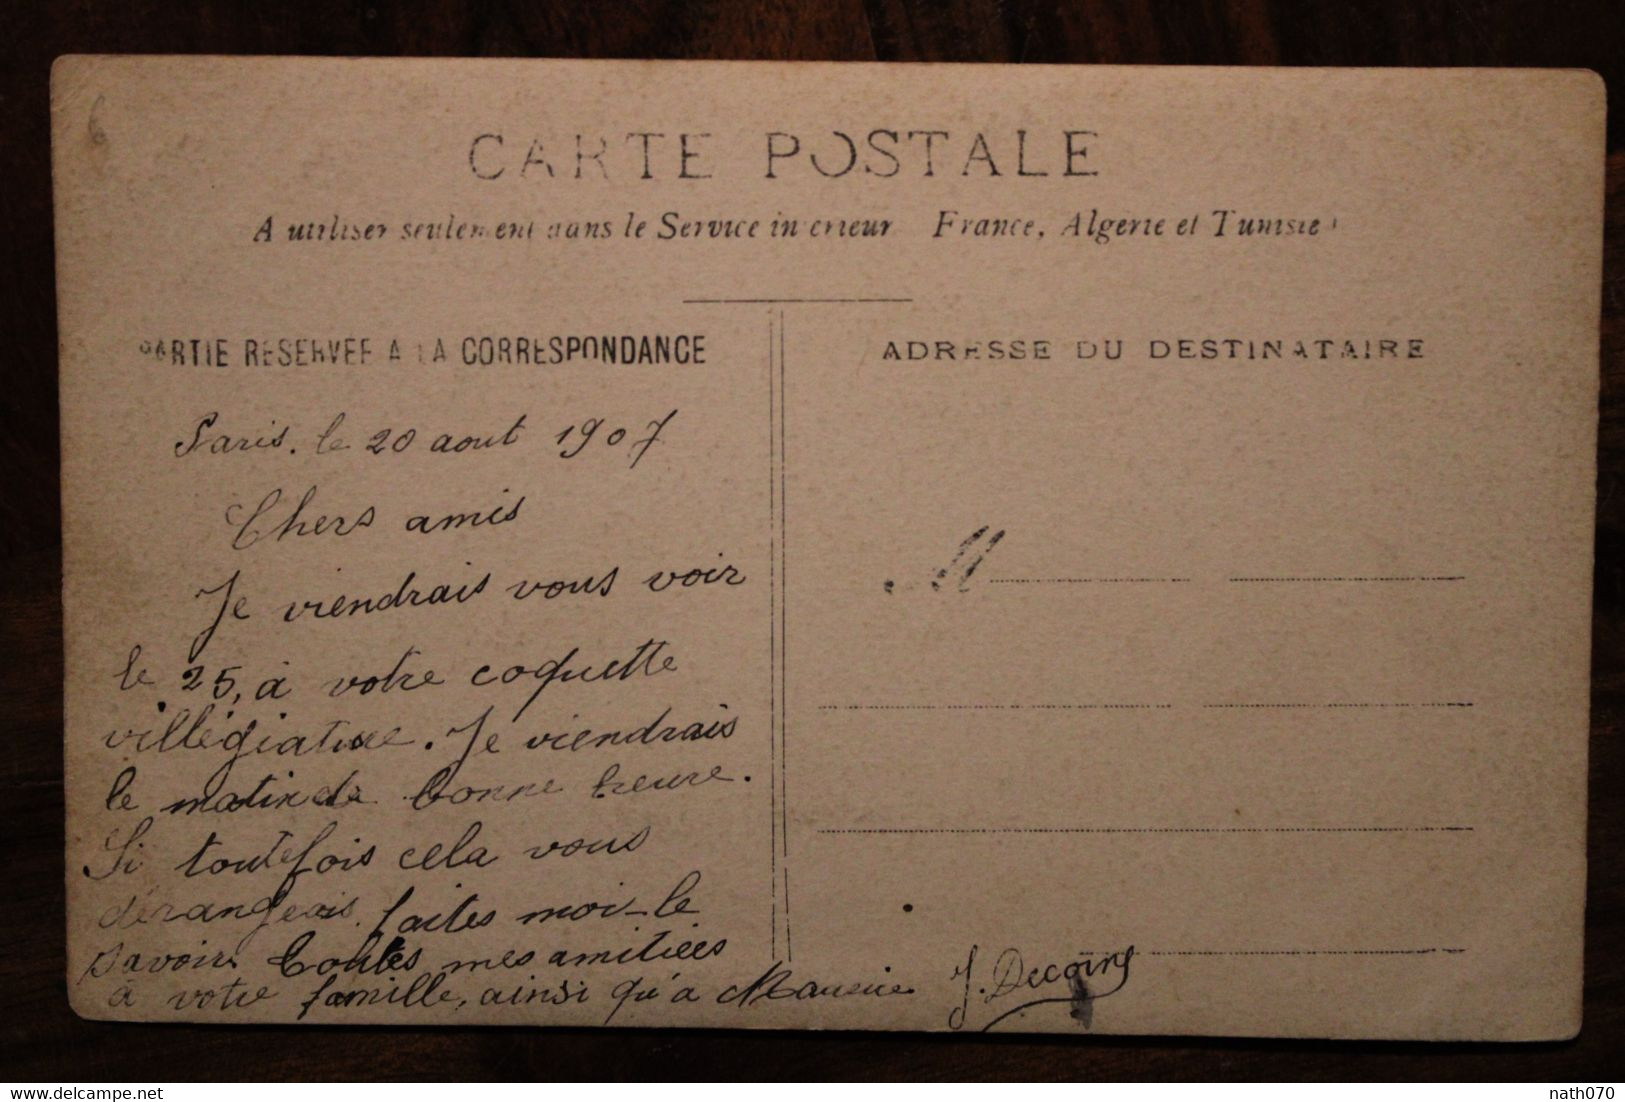 6
CARTE POSTALE
A utiliser seulement dans le Service interieur France, Algerie et Tunisie
PARTIE RESERVEE A LA CORRESPONDANCE
ADRESSE DU DESTINATAIRE
Paris. le 20 aout 1907
Chers amis
Je viendrais vous voir
le 25, à votre coquette
villégiature. Je viendrais
le matin de bonne heure.
Si toutefois cela vous
dérangeais, faites moi-le
savoir. Toutes mes amitiées
à votre famille, ainsi qu'a Maurice
J. Decoins
M
delcampe.net
nath070